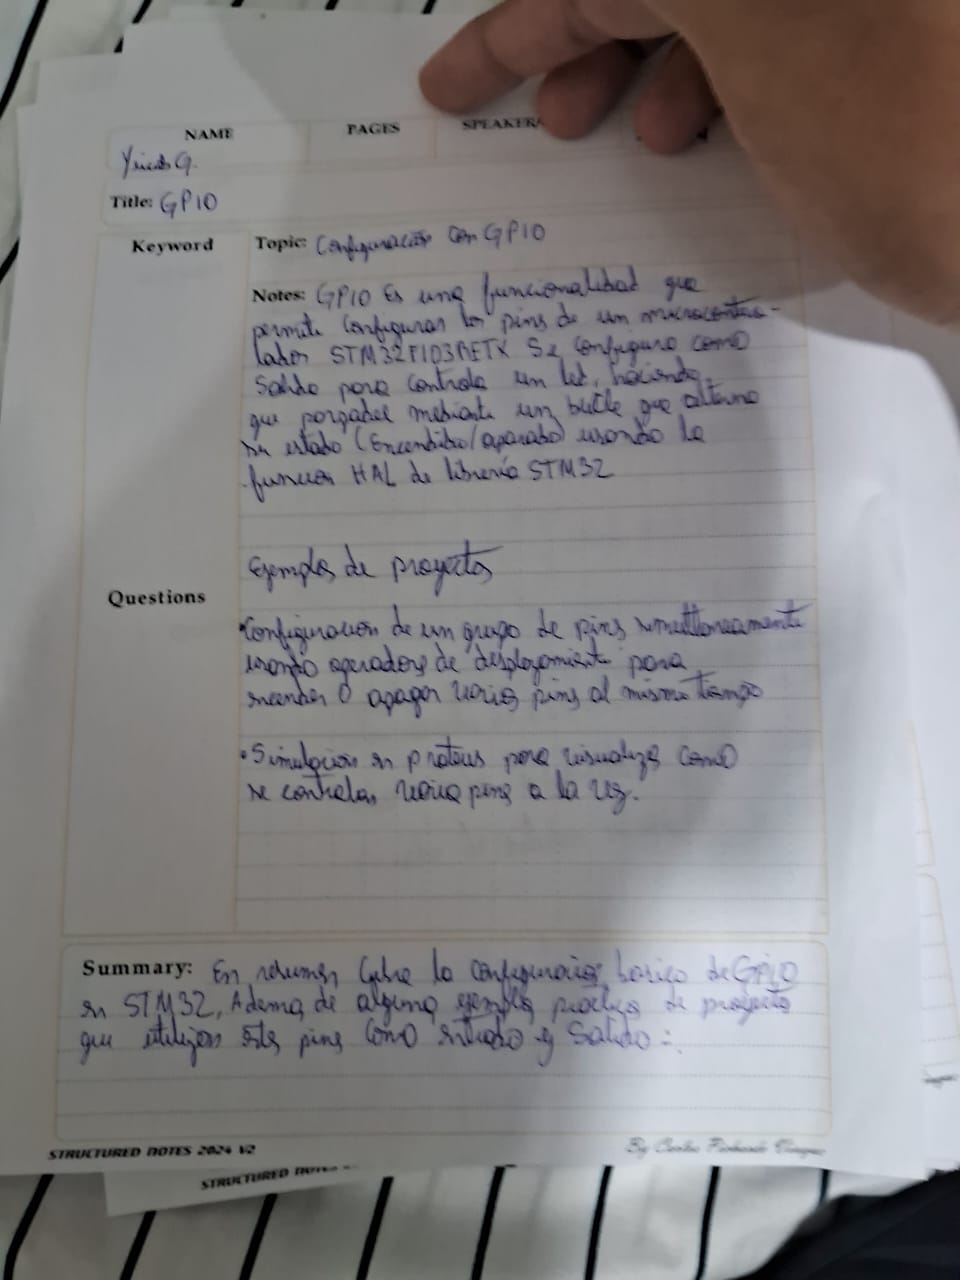 NAME PAGES SPEAKER
G.
Title: GPIO
Keyword Topic: Configuración con GPIO
Notes: GPIO Es una funcionalidad que
permite configurar los pins de un microcontro-
lador STM32F103RETX Se configura como
Salida para controla un led, haciendo
que parpadee mediante un bucle que alterna
su estado (Encendido/apagado) usando la
funcion HAL de librería STM32
Ejemplos de proyectos
Questions
• Configuracion de un grupo de pins simultaneamente
usando operadores de desplazamiento para
encender o apagar varios pins al mismo tiempo
• Simulacion en proteus para visualizar como
se controlan varios pins a la vez.
Summary: En resumen Cubre la configuracion basica de GPIO
en STM32, Ademas de algunos ejemplos practicos de proyectos
que utilizan estos pins como entrada y salida
STRUCTURED NOTES 2024 V2 By Carlos
STRUCTURED NOTES